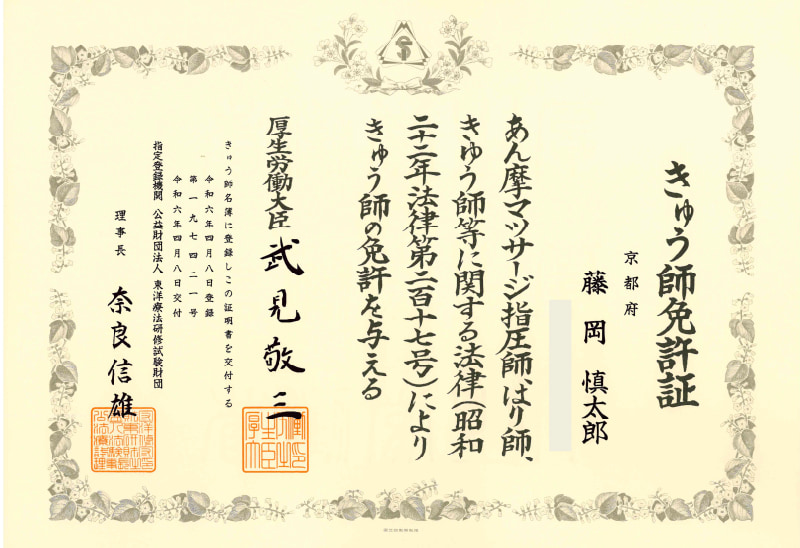 きゅう師免許証
京都府
藤岡 慎太郎
あん摩マッサージ指圧師、はり師、
きゆう師等に関する法律(昭和
二十二年法律第二百十七号)により
きゅう師の免許を与える
厚生労働大臣 武見敬三
きゅう師名簿に登録しこの証明書を交付する
令和六年四月八日登録
第一九七四二一号
令和六年四月八日交付
指定登録機関 公益財団法人 東洋療法研修試験財団
理事長 奈良信雄